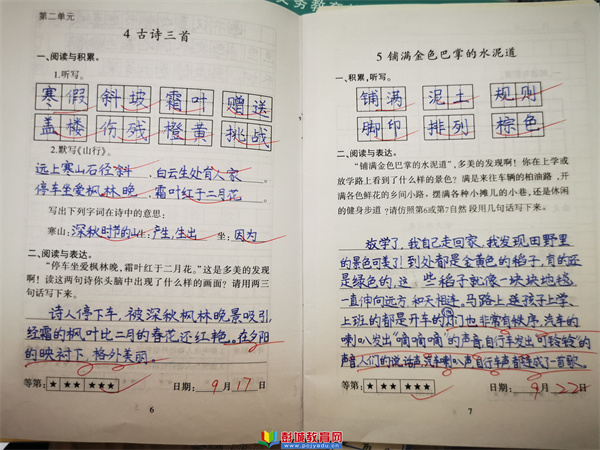 第二单元
4 古诗三首
一、阅读与积累。
1.听写。
寒假 斜坡 霜叶 赠送
盖楼 伤残 橙黄 挑战
2.默写《山行》。
远上寒山石径斜，白云生处有人家。
停车坐爱枫林晚，霜叶红于二月花。
写出下列字词在诗中的意思：
寒山：深秋时节的山 生：产生，生出 坐：因为
二、阅读与表达。
“停车坐爱枫林晚，霜叶红于二月花。”这是多美的发现
啊！读这两句诗你头脑中出现了什么样的画面？请用两三
句话写下来。
诗人停下车，被深秋枫林晚景吸引，
经霜的枫叶比二月的春花还红艳。在夕阳
的映衬下，格外美丽。
等第：★ ★★ ★★★ 日期：9月17日
6
5 铺满金色巴掌的水泥道
一、积累，听写。
铺满 泥土 规则
脚印 排列 棕色
二、阅读与表达。
“铺满金色巴掌的水泥道”，多美的发现啊！你在上学或
放学路上看到了什么样的景色？满是来往车辆的柏油路，开
满各色鲜花的乡间小路，摆满各种小摊儿的小巷，还是休闲
的健身步道？请仿照第6或第7自然段用几句话写下来。
放学了，我自己走回家，我发现田野里
的景色可美了！到处都是金黄色的稻子，有的还
是绿色的。这些稻子就像一块块地毯
一直伸向远方，和天相连。马路上送孩子上学、
上班的都是开车的，们也非常有秩序，汽车的
喇叭发出“嘀嘀嘀”的声音，自行车发出“可铃铃”的
声音，人们的说话声、汽车喇叭声、自行车声音连成了一首歌。
等第：★ ★★ ★★★ 日期：9月22日
7
彭城教育网
www.pcjyedu.cn